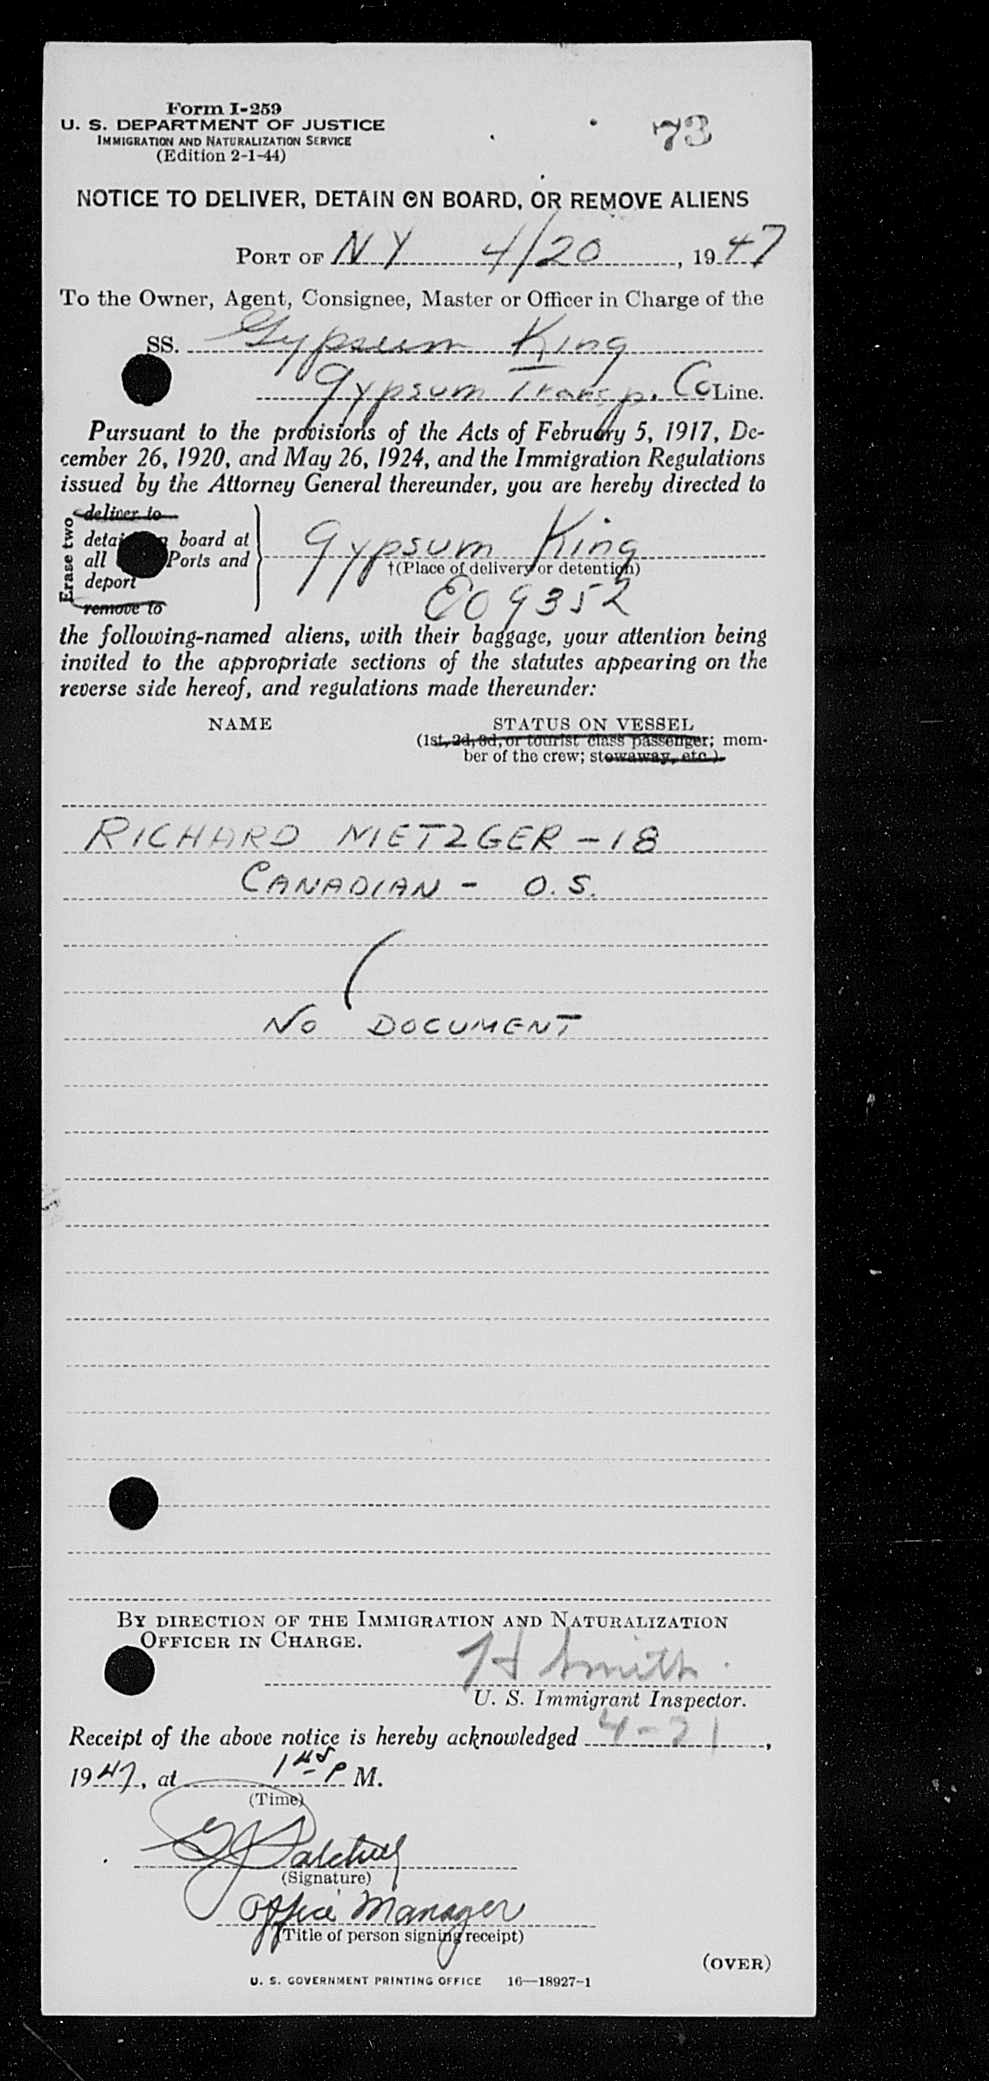 Form I-259
U. S. DEPARTMENT OF JUSTICE
IMMIGRATION AND NATURALIZATION SERVICE
(Edition 2-1-44)
73
NOTICE TO DELIVER, DETAIN ON BOARD, OR REMOVE ALIENS
PORT OF NY 4/20, 1947
To the Owner, Agent, Consignee, Master or Officer in Charge of the
SS. Gypsum King
Gypsum Transp. Co Line.
Pursuant to the provisions of the Acts of February 5, 1917, De-
cember 26, 1920, and May 26, 1924, and the Immigration Regulations
issued by the Attorney General thereunder, you are hereby directed to
Erase two
deliver to
board at
all Ports and
deport
remove to
Gypsum King
†(Place of delivery or detention)
E09352
the following-named aliens, with their baggage, your attention being
invited to the appropriate sections of the statutes appearing on the
reverse side hereof, and regulations made thereunder:
NAME STATUS ON VESSEL
(1st, 2d, 3d, or tourist class passenger; mem-
ber of the crew; stowaway, etc.)
RICHARD METZGER - 18
CANADIAN - O.S.
(
NO DOCUMENT
BY DIRECTION OF THE IMMIGRATION AND NATURALIZATION
OFFICER IN CHARGE.
H Smith
U. S. Immigrant Inspector.
Receipt of the above notice is hereby acknowledged 4-21,
1947, at 1 45 P M.
(Time)
(Signature)
Office Manager
(Title of person signing receipt)
(OVER)
U. S. GOVERNMENT PRINTING OFFICE 16—18927-1